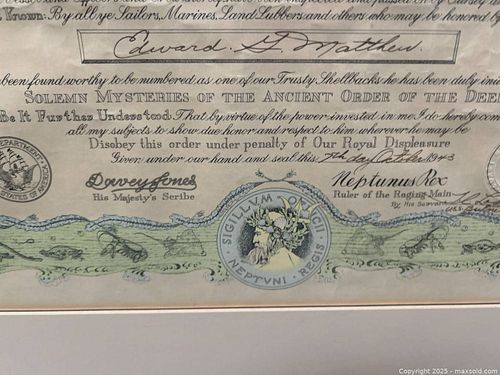 Known: By all ye Sailors, Marines, Land Lubbers and others who may be honored
Edward. G. Matthew.
been found worthy to be numbered as one of our Trusty Shellbacks he has been duly
SOLEMN MYSTERIES OF THE ANCIENT ORDER OF THE DEEP
Be It Further Understood: That by virtue of the power invested in me I do hereby
all my subjects to show due honor and respect to him wherever he may be
Disobey this order under penalty of Our Royal Displeasure
Given under our hand and seal this 7th day October 1943
DEPARTMENT
STATES OF AMERICA
Davey Jones
His Majesty's Scribe
Neptunus Rex
Ruler of the Raging Main
By His Servant
SIGILLVM
NEPTVNI REGIS
Copyright 2025 - maxsold.com